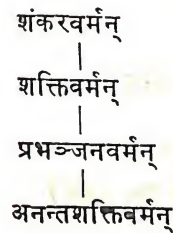 शंकरवर्मन्
शक्तिवर्मन्
प्रभञ्जनवर्मन्
अनन्तशक्तिवर्मन्